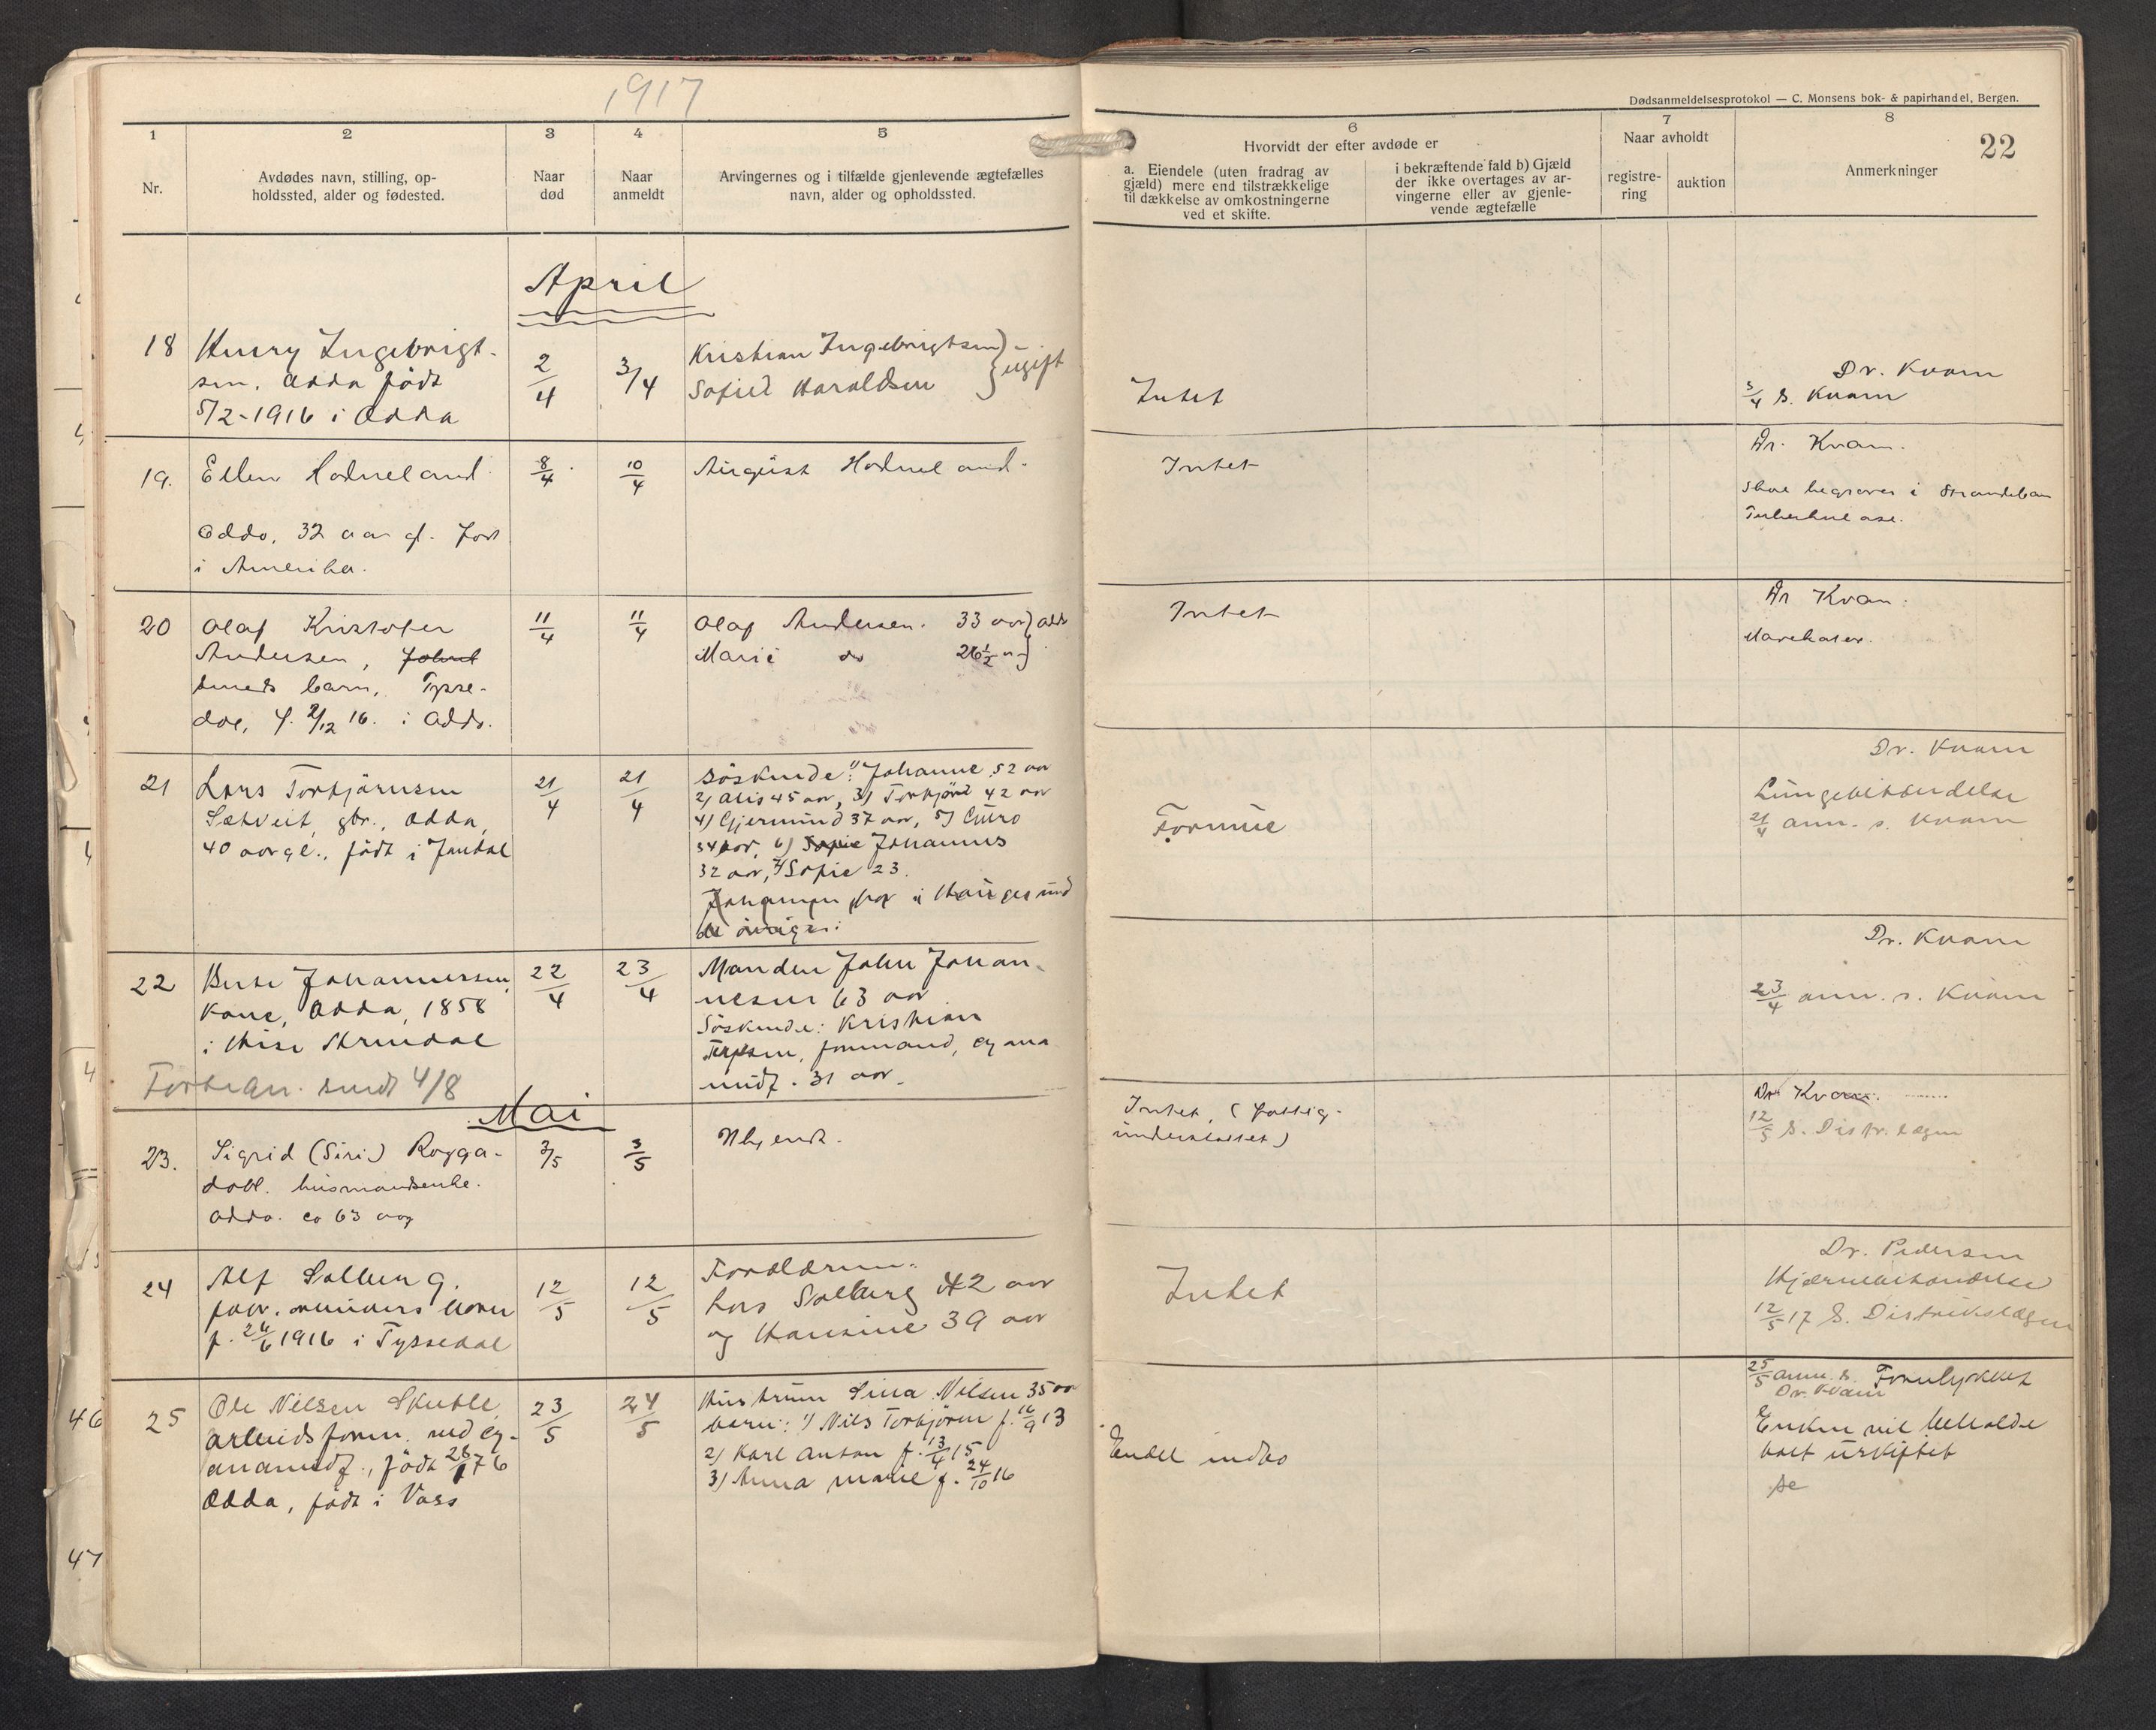 1917
Dødsanmeldelsesprotokol — C. Monsens bok- & papirhandel, Bergen.
22
1 2 3 4 5 6 7 8
Nr.
Avdødes navn, stilling, op-
holdssted, alder og fødested.
Naar
død
Naar
anmeldt
Arvingernes og i tilfælde gjenlevende ægtefælles
navn, alder og opholdssted.
Hvorvidt der efter avdøde er
a. Eiendele (uten fradrag av
gjæld) mere end tilstrækkelige
til dækkelse av omkostningerne
ved et skifte.
i bekræftende fald b) Gjæld
der ikke overtages av ar-
vingerne eller av gjenle-
vende ægtefælle
Naar avholdt
registre-
ring
auktion
Anmerkninger
April
18 Henry Ingebrigt-
sen, Odda født
5/2-1916 i Odda
2/4
3/4
Kristian Ingebrigtsen
Sofie Haraldsen
} ugift
Intet
Dr. Kvam
3/4 s. Kvam
19. Ellen Hodneland
Odda, 32 aar gl. født
i Amerika.
8/4
10/4
August Hodneland.
Intet
Dr. Kvam.
skal begraves i Strandebarm
Tuberkulose.
20 Olaf Kristofer
Andersen,
smeds barn, Tysse-
dal, f. 2/12 16. i Odda.
11/4
11/4
Olaf Andersen. 33 aar } Odda
Marie do 26 1/2 "
Intet
Dr Kvam.
21 Lars Torbjørnsen
Sætveit, gbr., Odda,
40 aar gl., født i Jondal
21/4
21/4
Søskende: 1) Johanne 52 aar
2) Olis 45 aar, 3) Torbjørn 42 aar
4) Gjermund 37 aar, 5) Guro
34 aar, 6) Sofie Johannes
32 aar, 7) Sofie 23.
Johannes bor i Haugesund
de øvrige i
Formue
Dr. Kvam
Lungebetændelse
21/4 anm. s. Kvam
22 Berte Johannessen,
kone, Odda, 1858
i Skrudal
Forhan. sendt 4/8
22/4
23/4
Manden John Johan-
nesen 63 aar
Søskende: Kristian
Terjesen, formand, Cyana
midf. 31 aar.
Dr. Kvam
23/4 anm. s. Kvam
Mai
23. Sigrid (Siri) Rogga-
dal. husmandsenke.
Odda. ca 63 aar
3/5
3/5
Ubekjendt.
Intet, (fattig-
understøttet)
Dr Kvam.
12/5 s. Distr. lægen
24 Alf Solberg.
fabr. arbeiders barn
f. 26/6 1916 i Tyssedal
12/5
12/5
Forældrene:
Lars Solberg 42 aar
og Hansine 39 aar
Intet
Dr. Pedersen
Hjernebetændelse
12/5 17 s. Distriktslægen
25 Ole Nilsen Skutle,
arbeidsform. ved cy-
anamidf., født 28/1 76
Odda, født i Voss
23/5
24/5
Hustruen Sina Nilsen 35 aar
barn: 1) Nils Torbjørn f. 16/9 13
2) Karl Anton f. 13/4 15
3) Anna Marie f. 24/10 16
Endel indbo
25/5 anm. s. Forulykket
Dr. Kvam
Enken vil beholde
boet uskiftet
se
46
47